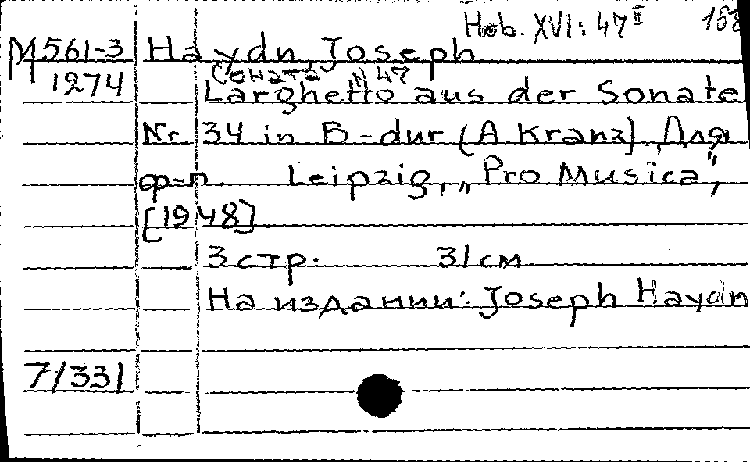 Hob. XVI: 47 II
M 561-3 Haydn Joseph
1274 Соната N 47
Larghetto aus der Sonate
Nr. 34 in B-dur (A Kranz). Для
ф-п. Leipzig, „Pro Musica",
[1948]
3 стр. 31 см
На издании: Joseph Haydn
7/331